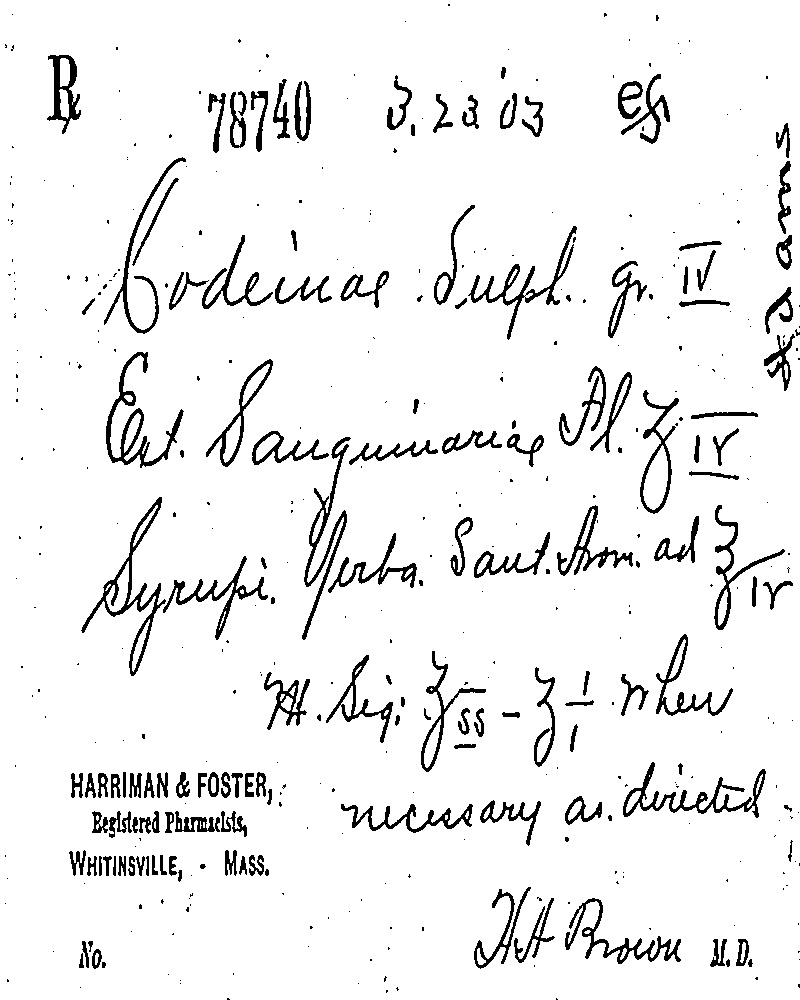 ℞ 78740 3.23'03
Codeinae Sulph. gr. IV
Ext. Sanguinariae Fl. ʒ IV
Syrupi. Yerba. Sant. Arom. ad ℥ IV
M. Sig: ʒ ss - ʒ i when
necessary as directed
HARRIMAN & FOSTER,
Registered Pharmacists,
WHITINSVILLE, - MASS.
H A Brown M. D.
No.